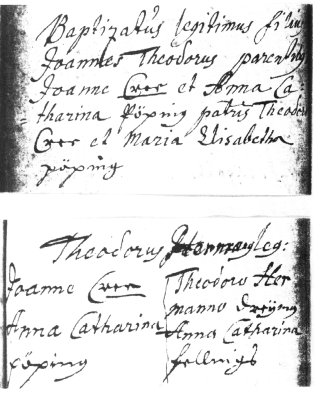 Baptizatus legitimus filius
Joannes Theodorus parentibus
Joanne Cree et Anna Ca-
tharina Pöping patris Theodor
Cree et Maria Elisabetha
pöping
Theodorus leg:
Joanne Cree
Anna Catharina
pöping
Theodoro Her
manno
Anna Catharina
fellings